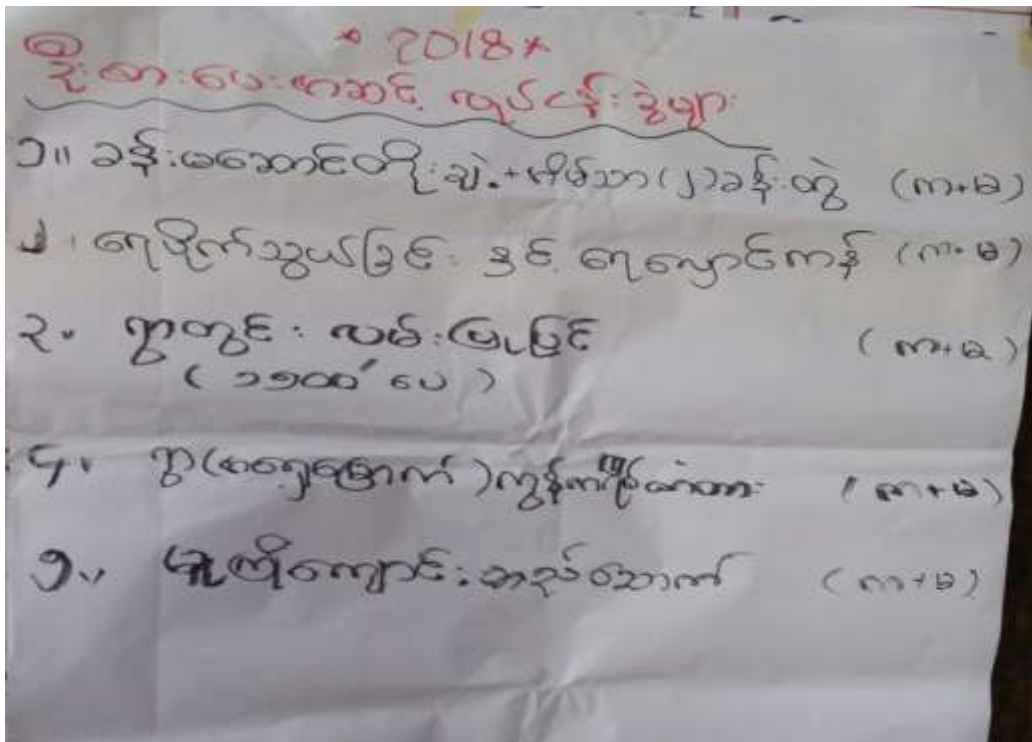 * 2018 *
ဦးစားပေးအဆင့် လုပ်ငန်းခွဲများ
၁။ ခန်းမဆောင်တိုးချဲ့+အိမ်သာ(၂)ခန်းတွဲ (က+မ)
၂။ ရေပိုက်သွယ်ခြင်း နှင့် ရေလှောင်ကန် (က+မ)
၃။ ရွာတွင်း လမ်းပြုပြင် (က+မ)
(၁၅၀၀' ပေ)
၄။ ရွာ(အရှေ့မြောက်)ကွန်ကရစ်တံတား (က+မ)
၅။ မူကြိုကျောင်းအဆောက် (က+မ)